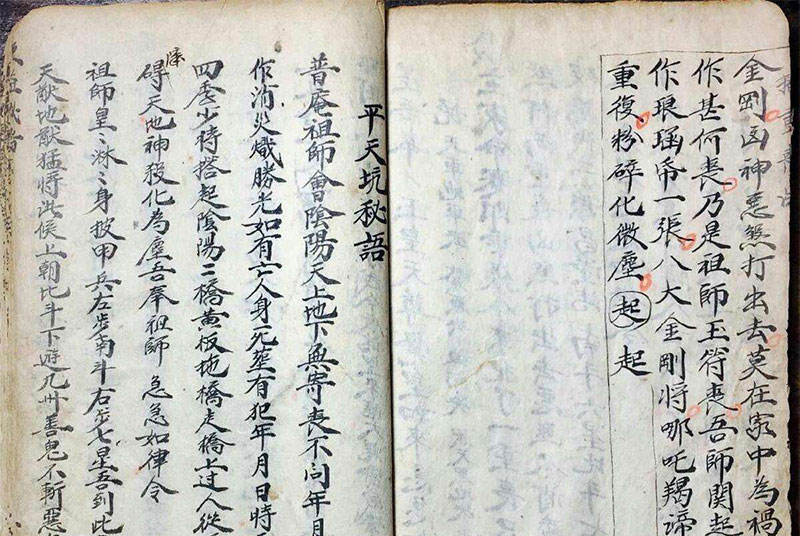 金剛凶神惡煞打出去莫在家中為禍
作甚何喪乃是祖師玉符喪吾師關起
作琅瑶帝一張八大金剛將哪吒羯諦
重復粉碎化微塵起 起
平天坑秘語
普庵祖師會陰陽天上地下無寄喪不問年月
作消災熾勝光如有亡人身死塟有犯年月日時
四季少時搭起陰陽二橋黃板地橋走橋上过人從
碍天地神殺化為塵吾奉祖師 急急如律令
祖師皇々淋々身披甲兵左步南斗右步七星吾到此
天猷地猷猛將此候上朝北斗下遊九州善鬼不斬惡